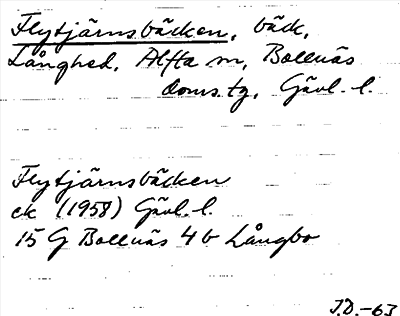 Flytjärnsbäcken, bäck,
Långhed, Alfta sn, Bollnäs
doms.tg, Gävl. l.
Flytjärnsbäcken
ek (1958) Gävl. l.
15 G Bollnäs 4 b Långbo
J.D.-63